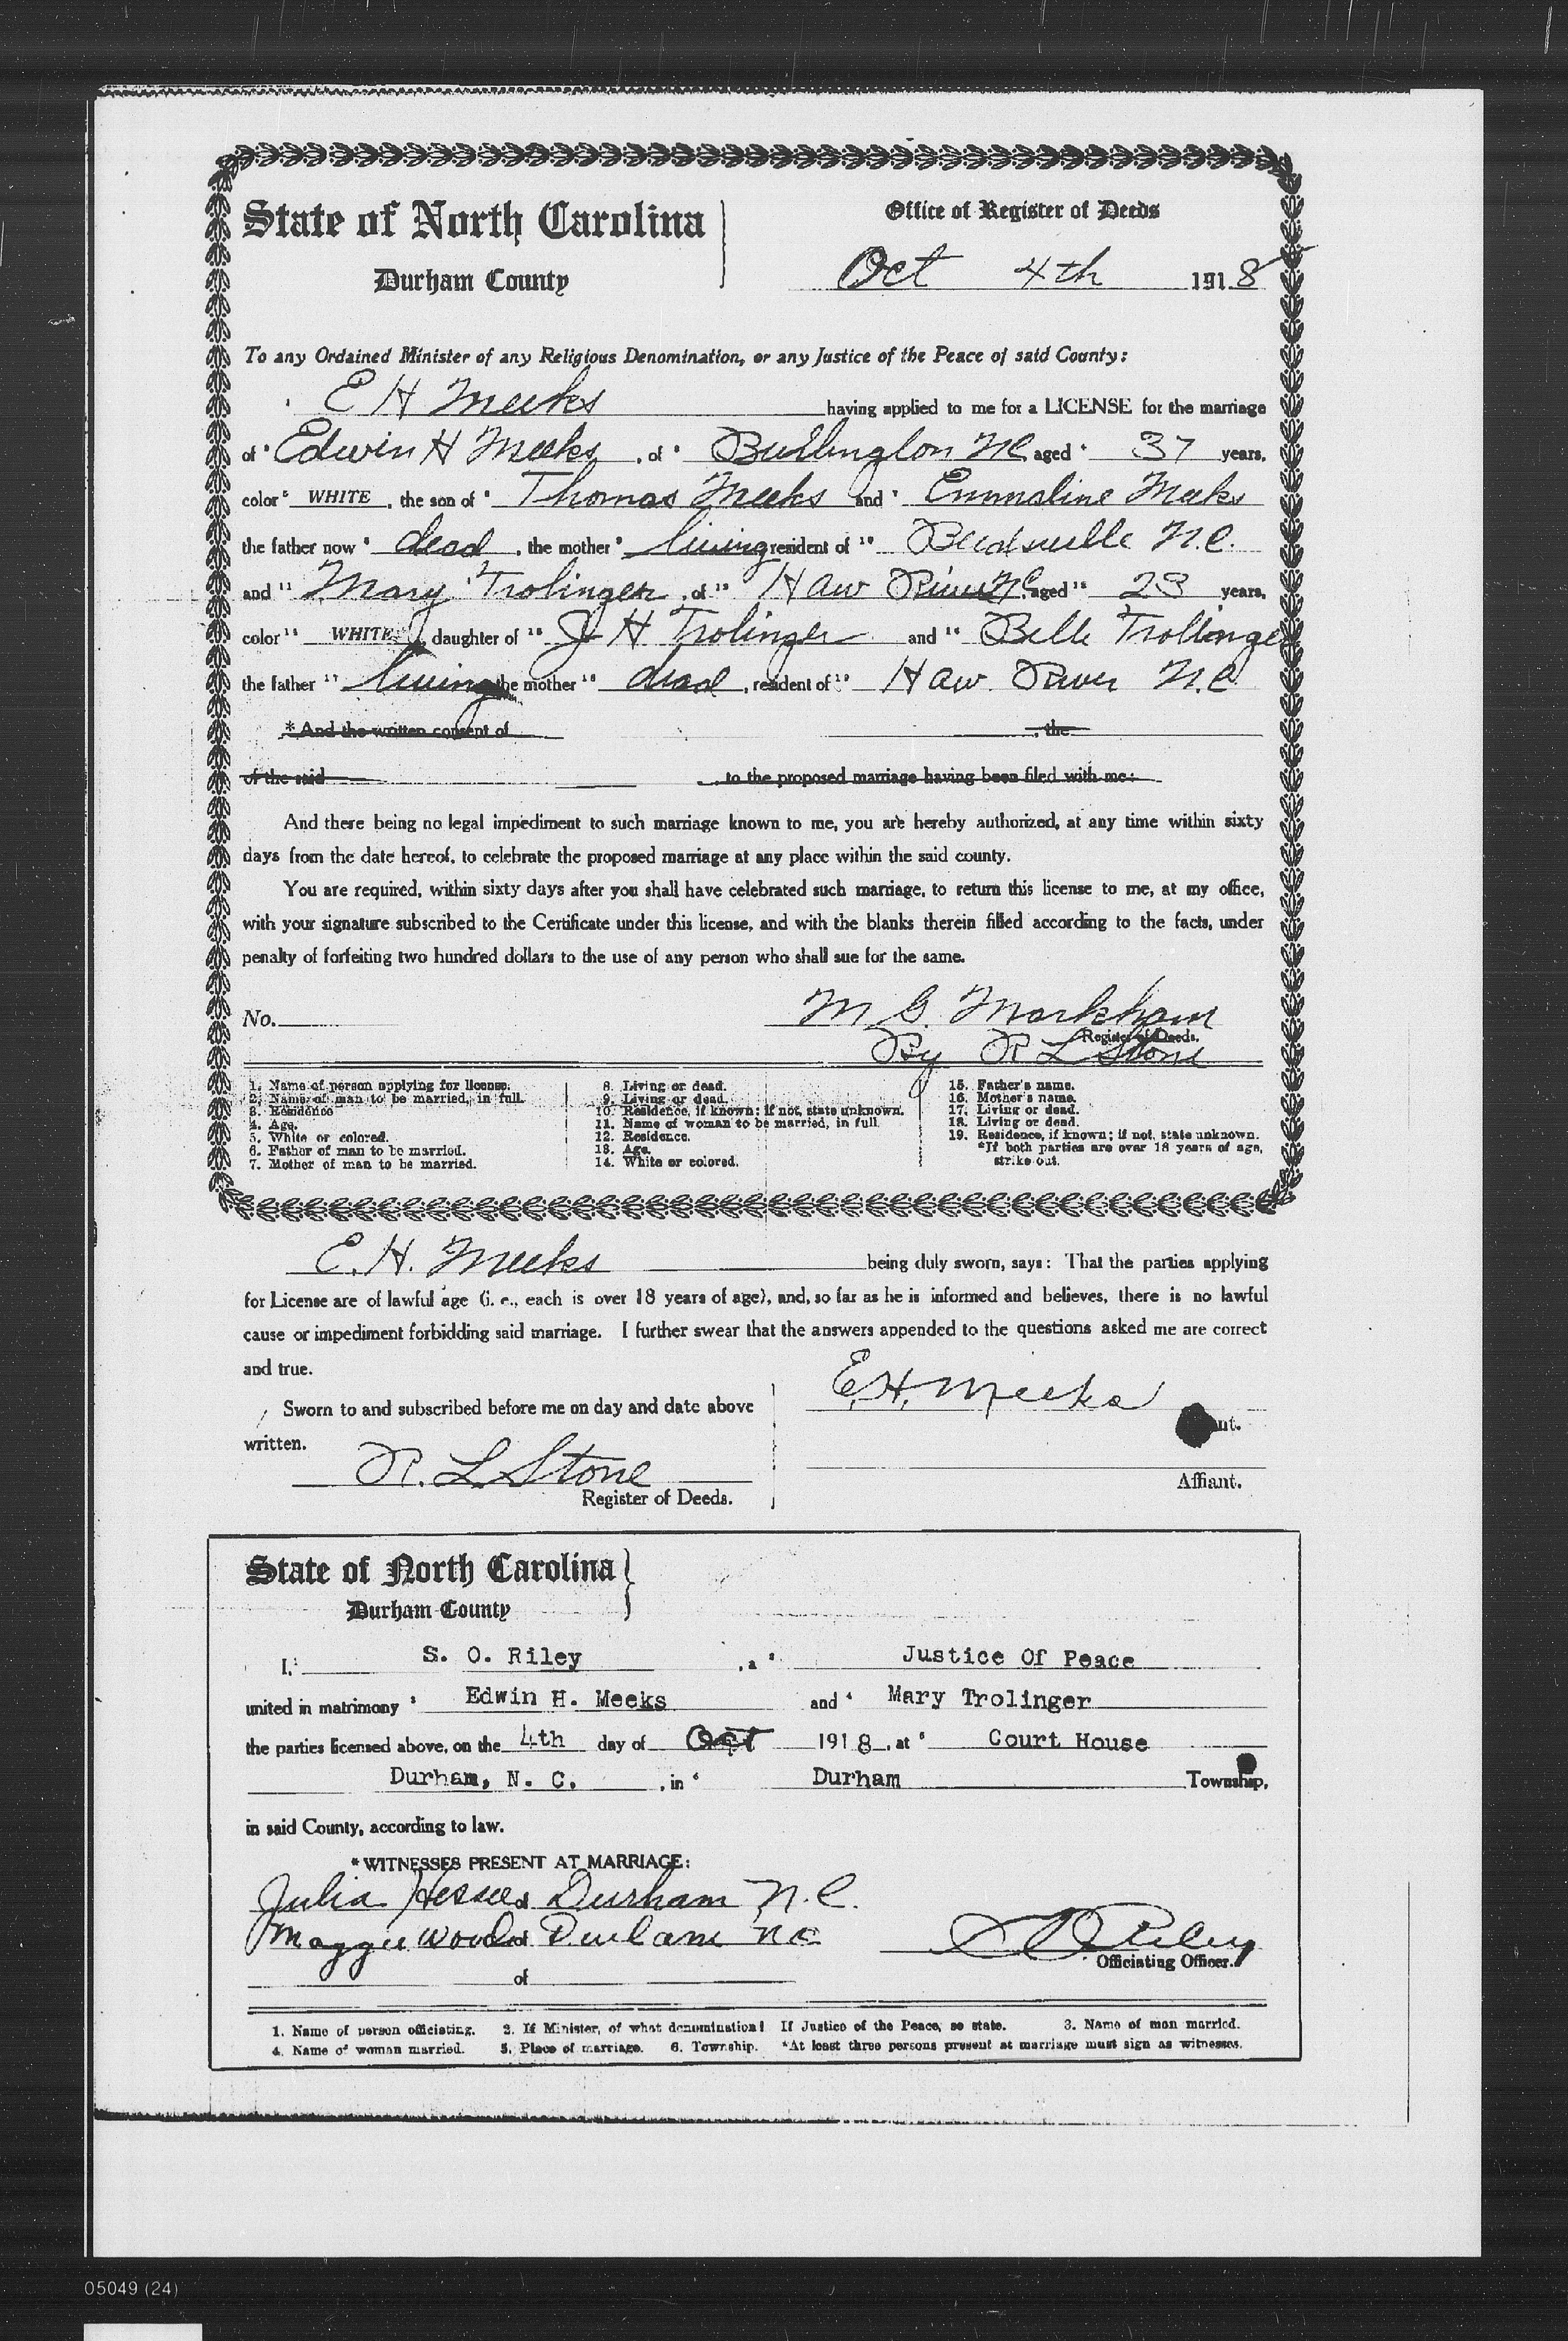 State of North Carolina
Durham County
Office of Register of Deeds
Oct 4th 1918
To any Ordained Minister of any Religious Denomination, or any Justice of the Peace of said County:
E H Meeks having applied to me for a LICENSE for the marriage
of Edwin H Meeks, of Burlington NC aged 37 years,
color WHITE, the son of Thomas Meeks and Emmaline Meeks
the father now dead, the mother living resident of N.C.
and Mary Trolinger, of Haw River NC aged 23 years,
color WHITE, daughter of J H Trolinger and Belle Trollinger
the father living the mother dead, resident of Haw River N.C
* And the written consent of , the
of the said , to the proposed marriage having been filed with me:
And there being no legal impediment to such marriage known to me, you are hereby authorized, at any time within sixty
days from the date hereof, to celebrate the proposed marriage at any place within the said county.
You are required, within sixty days after you shall have celebrated such marriage, to return this license to me, at my office,
with your signature subscribed to the Certificate under this license, and with the blanks therein filled according to the facts, under
penalty of forfeiting two hundred dollars to the use of any person who shall sue for the same.
No. M G. Markham
Register of Deeds.
By R L Stone
1. Name of person applying for license.
2. Name of man to be married, in full.
3. Residence
4. Age.
5. White or colored.
6. Father of man to be married.
7. Mother of man to be married.
8. Living or dead.
9. Living or dead.
10. Residence, if known; if not, state unknown.
11. Name of woman to be married, in full.
12. Residence.
13. Age.
14. White or colored.
15. Father's name.
16. Mother's name.
17. Living or dead.
18. Living or dead.
19. Residence, if known; if not, state unknown.
*If both parties are over 18 years of age,
strike out.
E. H. Meeks being duly sworn, says: That the parties applying
for License are of lawful age (i. e., each is over 18 years of age), and, so far as he is informed and believes, there is no lawful
cause or impediment forbidding said marriage. I further swear that the answers appended to the questions asked me are correct
and true.
Sworn to and subscribed before me on day and date above
written.
R. L Stone
Register of Deeds.
E.H. Meeks
nt.
Affiant.
State of North Carolina
Durham County
I, S. O. Riley, a Justice Of Peace
united in matrimony Edwin H. Meeks and Mary Trolinger
the parties licensed above, on the 4th day of Oct 1918, at Court House
Durham, N. C., in Durham Township,
in said County, according to law.
* WITNESSES PRESENT AT MARRIAGE:
Julia of Durham N.C.
Maggie Woods of Durham NC
of
S O Riley
Officiating Officer.
1. Name of person officiating. 2. If Minister, of what denomination? If Justice of the Peace, so state. 3. Name of man married.
4. Name of woman married. 5. Place of marriage. 6. Township. *At least three persons present at marriage must sign as witnesses.
05049 (24)